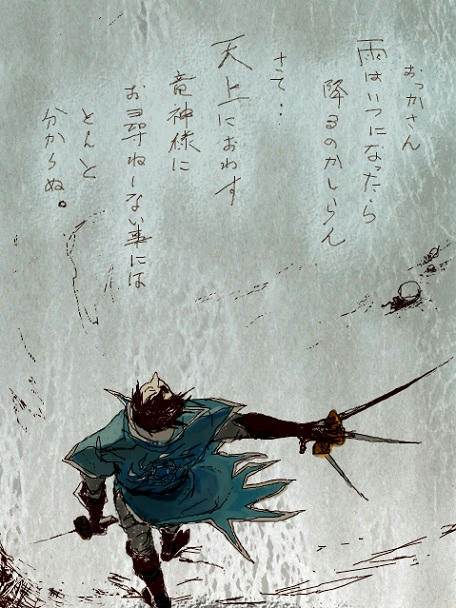 おっかさん
雨はいつになったら
降るのかしらん
さて：
天上におわす
竜神様に
お尋ねしない事には
とんと
分からぬ。